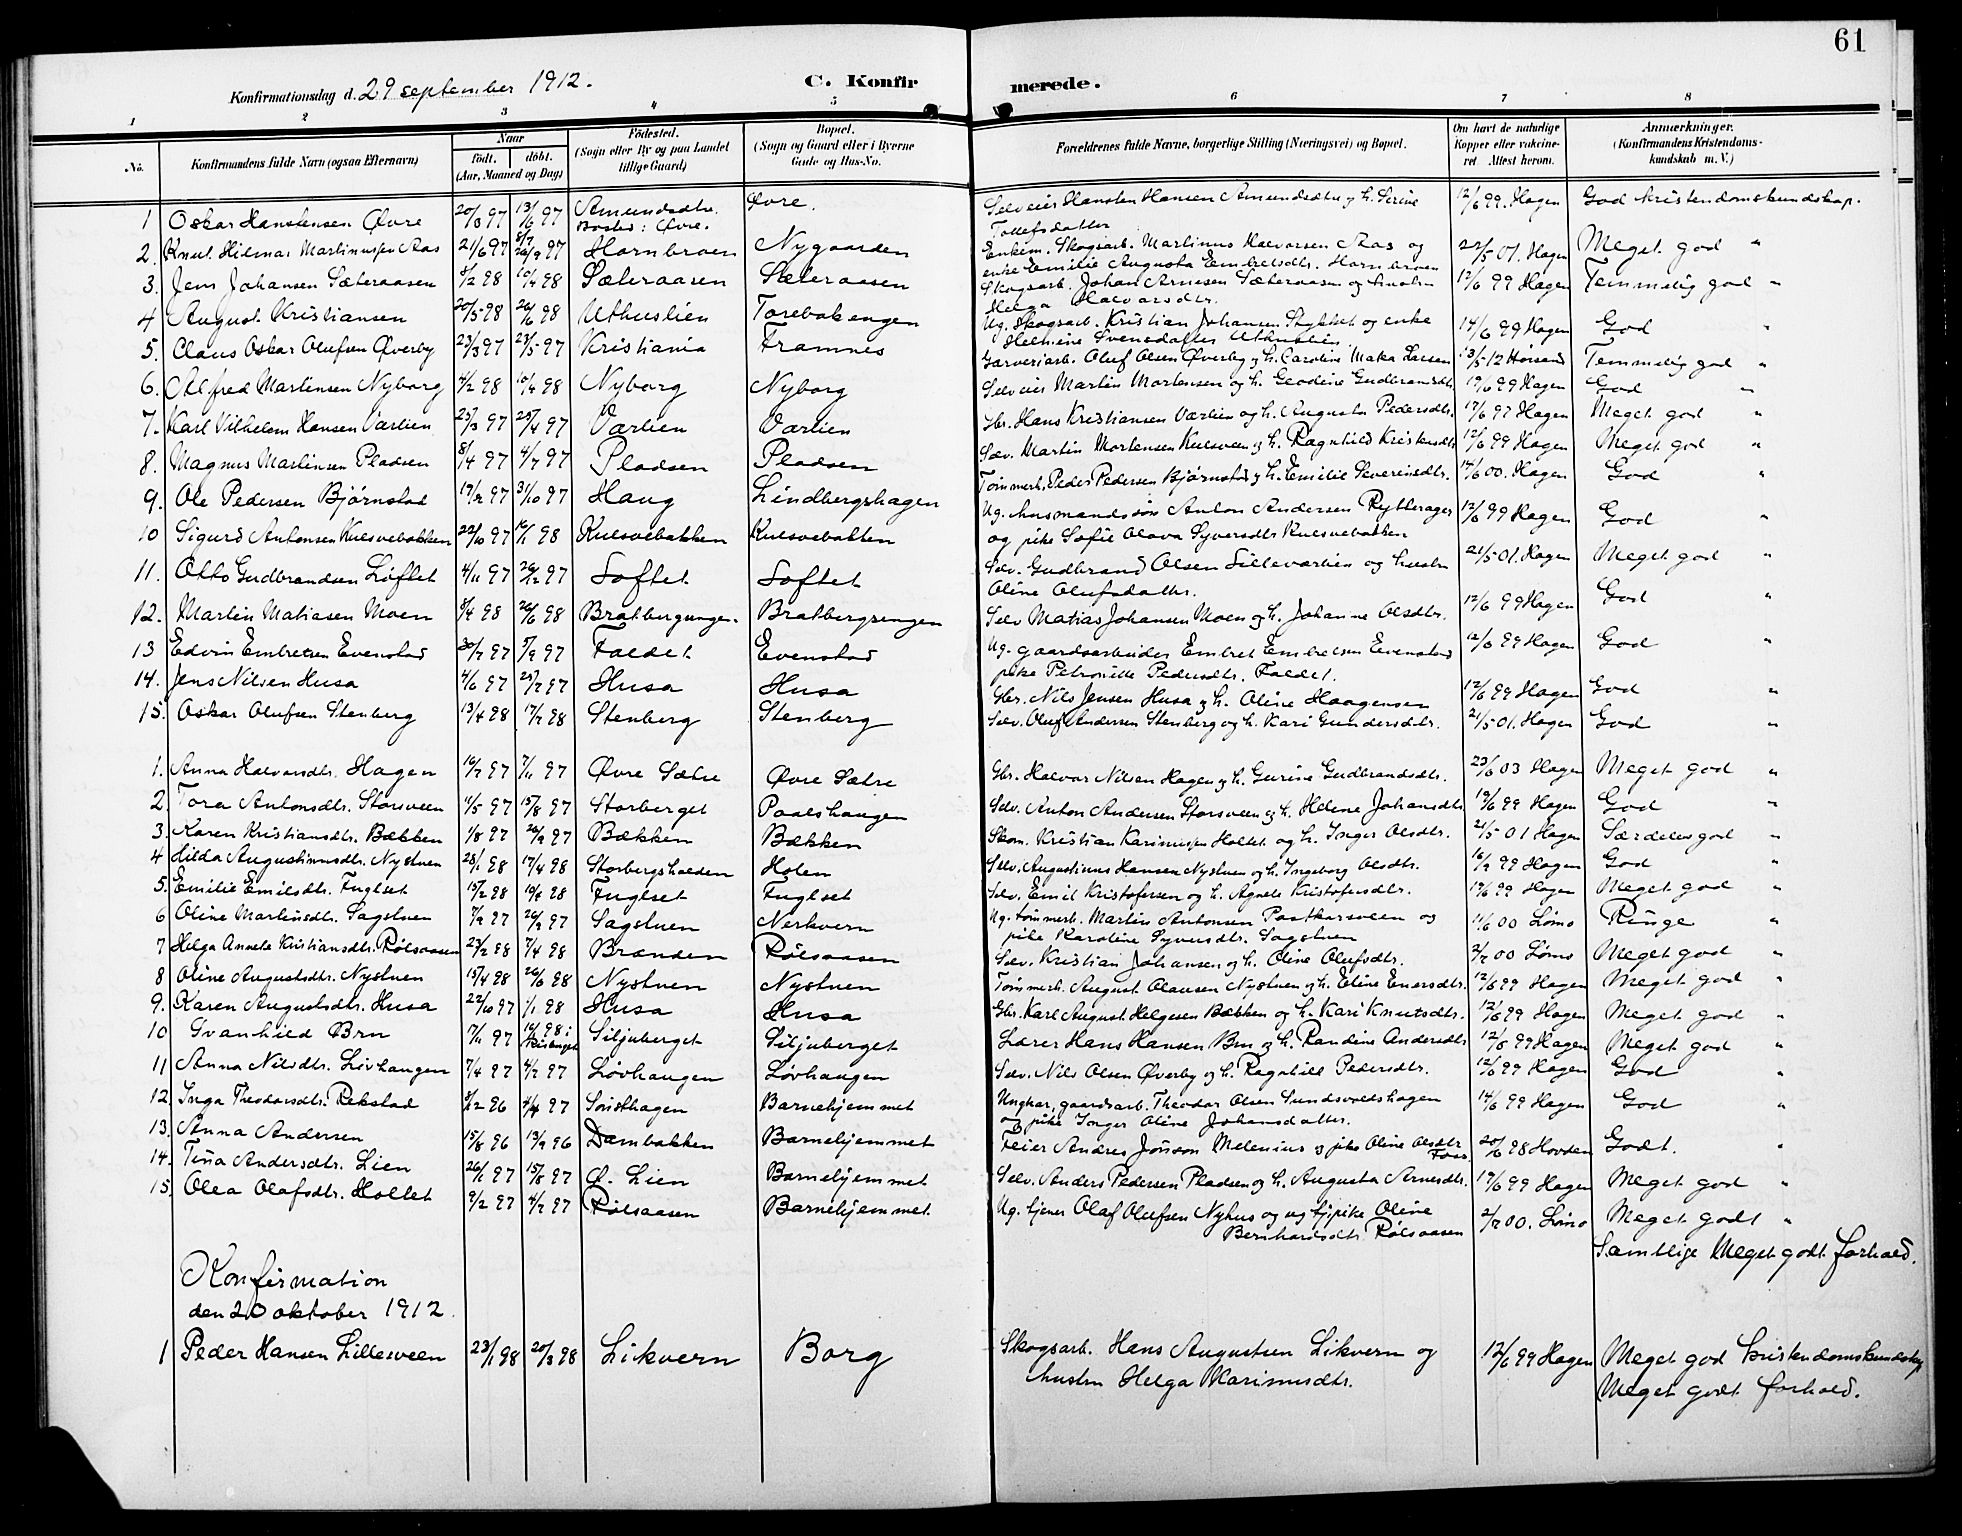 61
Konfirmationsdag d. 29 september 1912. C. Konfirmerede.
1 2 3 4 5 6 7 8
No. Konfirmandens fulde Navn (ogsaa Efternavn) Naar født. døbt. (Aar, Maaned og Dag) Fødested. (Sogn eller By og paa Landet tillige Gaard) Bopæl. (Sogn og Gaard eller i Byerne Gade og Hus-No. Forældrenes fulde Navne, borgerlige Stilling (Næringsvei) og Bopæl. Om havt de naturlige Kopper eller vaccineret Attest herom. Anmerkninger. (Konfirmandens Kristendomskundskab m. V.)
1 Oskar Hanstensen Øvre 20/3 97 13/6 97 Amundsdtr. Bosted: Øvre. Øvre. Selveier Hansten Hansen Amundsdtr. og h. Serine Tollefsdatter 12/6 99. Hagen God Kristendomskundskap.
2. Knut Hilmar Martinusen Aas 21/6 97 26/9 97 Hornbroen Nygaarden Enkem. Skogsarb. Martinus Halvorsen Aas og enke Emilie Augusta Embretsdtr. Hornbroen 22/5 01. Hagen Meget god "
3. Jens Johansen Sæteraasen 8/2 98 10/4 98 Sæteraasen Sæteraasen Skogsarb. Johan Arnesen Sæteraasen og hustru Helga Halvorsdtr. 12/6 99 Hagen Temmelig god "
4 August Kristiansen 20/5 98 26/6 98 Uthuslien Torebakengen Ug. Skogsarb. Kristian Johansen Styktet og enke Helmine Svensdatter Uthuslien 14/6 99 Hagen God "
5. Claus Oskar Olufsen Øverby 23/3 97 23/5 97 Kristiania Framnes Garveriarb. Oluf Olsen Øverby og h. Caroline Maka Larsen 13/5 12 Temmelig god "
6. Alfred Martinsen Nyborg 4/2 98 10/4 98 Nyborg Nyborg Selveier Martin Mortensen og h. Geodine Gudbrandsdtr. 19/6 99 Hagen God "
7. Karl Vilhelm Hansen Værlien 25/3 97 25/4 97 Værlien Værlien Gbr. Hans Kristiansen Værlien og h. Augusta Pedersdtr. 17/6 97 Hagen Meget god "
8. Magnus Martinsen Pladsen 8/4 97 4/7 97 Pladsen Pladsen Sæv. Martin Mortensen Kulsveen og h. Ragnhild Kristensdtr 12/6 99 Hagen Meget god "
9. Ole Pedersen Bjørnstad 31/10 97 Haug Lindbergshagen Tømmerh. Peder Pedersen Bjørnstad og h. Emilie Severinsdtr. 14/6 00. Hagen God "
10 Sigurd Antonsen Kulsvebakken 22/10 97 16/1 98 Kulsvebakken Kulsvebakken Ug. husmandssøn Anton Andersen Rytterager og pike Sofie Olava Syversdtr. Kulsvebakken 12/6 99 Hagen God "
11. Otto Gudbrandsen Løftet 4/11 97 26/12 97 Løftet Løftet Selv. Gudbrand Olsen Lilleværlien og hustru Oline Olufsdatter. 21/5 01. Hagen Meget god "
12. Martin Matiasen Moen 8/4 98 26/6 98 Bratbergsengen. Bratbergsengen Selv Matias Johansen Moen og h. Johanne Olsdtr. 12/6 99 Hagen God "
13 Edvin Embretsen Evenstad 30/7 97 5/9 97 Faldet Evenstad Ug. gaardsarbeider Embret Embretsen Evenstad pike Petronille Pedersdtr. Faldet. 12/6 99 Hagen God "
14. Jens Nilsen Husa 4/6 97 25/7 97 Husa Husa Gbr. Nils Jensen Husa og h. Oline Haagensen 12/6 99 Hagen God "
15. Oskar Olufsen Stenberg 13/4 98 17/7 98 Stenberg Stenberg Selv. Oluf Andersen Stenberg og h. Kari Gundersdtr. 21/5 01. Hagen God "
1. Anna Halvorsdtr. Hagen 16/7 97 7/11 97 Øvre Sætre Øvre Sætre Gbr. Halvor Nilsen Hagen og h. Gurine Gudbrandsdtr. 23/6 03 Hagen Meget god "
2. Tora Antonsdtr. Storsveen 4/5 97 15/8 97 Storberget Paalshaugen Selv. Anton Andersen Storsveen og h. Helene Johansdtr 19/6 99 Hagen God "
3. Karen Kristiansdtr. Bækken 1/8 97 26/9 97 Bækken Bækken Skom. Kristian Karinusen Holtet og h. Inger Olsdtr. 21/5 01 Hagen Særdeles god "
4 Hilda Augustinusdtr. Nystuen 28/1 98 17/4 98 Storbergshalden Holen Selv. Augustinus Hansen Nystuen og h. Ingeborg Olsdtr. 16/9 99 Hagen God "
5. Emilie Emilsdtr. Fuglset 15/2 98 Fuglset Fuglset Selv. Emil Kristofersen og h. Agnete Kristofersdtr. 19/6 99 Hagen Meget god "
6 Oline Martinsdtr. Sagstuen 7/9 97 26/9 97 Sagstuen Nerkvern Ug. tømmerh. Martin Antonsen Postkarsveen og pike Karoline Syversdtr. Sagstuen 11/6 00 Lømo Ringe "
7 Helga Annette Kristiansdtr. Rølsaasen 23/2 98 7/4 98 Branden Rølsaasen Selv. Kristian Johansen og h. Oline Olufsdtr. 2/7 00 Lømo Meget god "
8 Oline Augustsdtr. Nystuen 15/4 98 26/6 98 Nystuen Nystuen Tømmerh. August Olausen Nystuen og h. Eline Enersdtr. 12/6 99 Hagen Meget god "
9. Karen Augustsdtr. Husa 22/10 97 1/1 98 Husa Husa Gbr. Karl August Helgesen Bækken og h. Kari Knutsdtr. 12/6 99 Hagen Meget god "
10 Svanhild Bru 7/11 97 98 i Siljuberget Siljuberget Lærer Hans Hansen Bru og h. Randine Andersdtr 12/6 99 Hagen Meget god "
11 Anna Nilsdtr. Løvhaugen 7/4 97 4/7 97 Løvhaugen Løvhaugen Selv. Nils Olsen Øverby og h. Ragnhild Pedersdtr. 12/6 99 Hagen God "
12. Inga Theodorsdtr. Rekstad 8/12 96 4/4 97 Sorsthagen Barnehjemmet Ungkar, gaardsarb. Theodor Olsen Sundsvoldshagen og pike Inger Oline Johansdatter. 14/6 99 Hagen God "
13. Anna Andersen 15/8 96 13/9 96 Dambakken Barnehjemmet Feier Andres Jonson Melenius og pike Oline Olsdtr Foss 20/6 98 Hovden Godt. "
14. Tina Andersdtr. Lien 26/1 97 15/8 97 Ø. Lien Barnehjemmet Selv. Anders Pedersen Pladsen og h. Augusta Arnesdtr. 19/6 99 Hagen Meget god "
15. Olea Olafsdtr. Holtet 9/2 97 4/7 97 Rølsaasen Barnehjemmet Ug. tjener Olaf Olufsen Nyhus og ug tj.pike Oline Bernhardsdtr. Rølsaasen 2/7 00. Lømo Meget godt "
Samtlige Meget godt forhold.
Konfirmation
den 20 oktober 1912.
1 Peder Hansen Lillesveen 23/1 98 20/3 98 Likvern Borg Skogsarb. Hans Augustsen Likvern og hustru Helga Karinusdtr. 12/6 99 Hagen Meget god Kristendomskundskap Meget godt forhold.